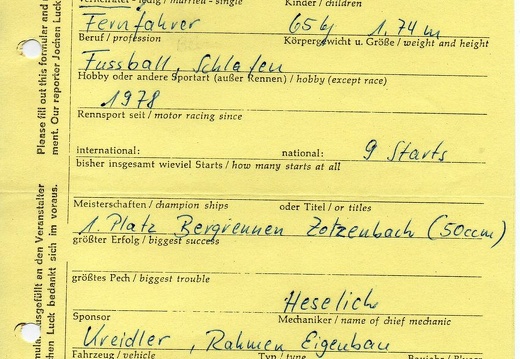 Verheiratet - ledig / married - single Kinder / children
Fernfahrer 65 kg 1.74 m
Beruf / profession Körpergewicht u. Größe / weight and height
Fussball, Schlafen
Hobby oder andere Sportart (außer Rennen) / hobby (except race)
1978
Rennsport seit / motor racing since
international: national: 9 Starts
bisher insgesamt wieviel Starts / how many starts at all
Meisterschaften / champion ships oder Titel / or titles
1. Platz Bergrennen Zotzenbach (50ccm)
größter Erfolg / biggest success
größtes Pech / biggest trouble
Heselich
Sponsor Mechaniker / name of chief mechanic
Kreidler, Rahmen Eigenbau
Fahrzeug / vehicle Typ / type
Please fill out this formular and
ment. Our reporter Jochen Luck
ausgefüllt an den Veranstalter
Jochen Luck bedankt sich im voraus.